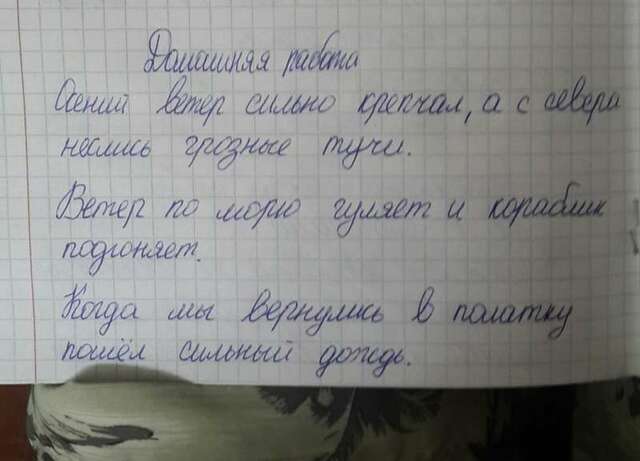 Домашняя работа
Осений ветер сильно крепчал, а с севера
неслись грозные тучи.
Ветер по морю гуляет и кораблик
подгоняет.
Когда мы вернулись в палатку
пошёл сильный дождь.